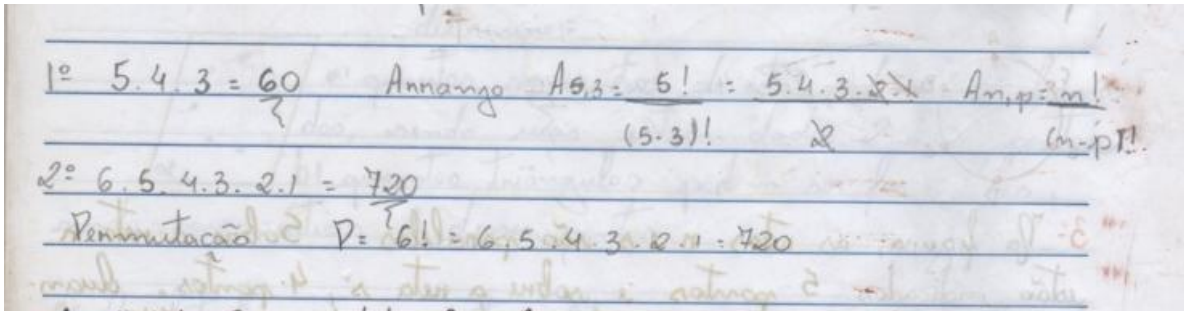 1º 5.4.3 = 60 Arranjo A5,3 = 5! = 5.4.3.2.1 An,p = n!
(5-3)! 2 (n-p)!
2º 6.5.4.3.2.1 = 720
Permutação P = 6! = 6.5.4.3.2.1 = 720